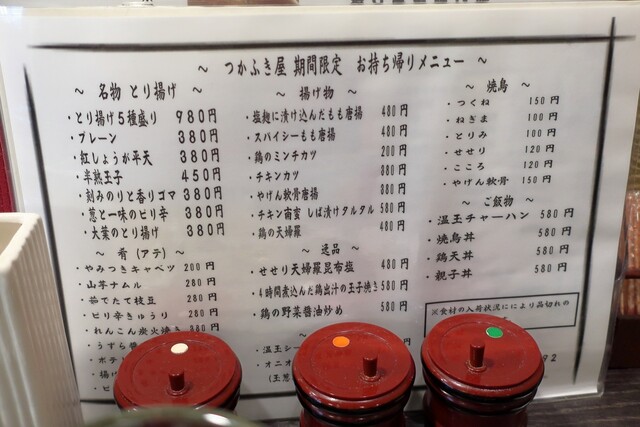 ～ つかふき屋 期間限定 お持ち帰りメニュー ～
～ 名物 とり揚げ ～
・とり揚げ５種盛り 980円
・プレーン 380円
・紅しょうが平天 380円
・半熟玉子 450円
・刻みのりと香りゴマ 380円
・葱と一味のピリ辛 380円
・大葉のとり揚げ 380円
～ 肴（アテ）～
・やみつきキャベツ 200円
・山芋ナムル 280円
・茹でたて枝豆 280円
・ピリ辛きゅうり 280円
・れんこん炭火焼き 380
・うずら
・ポテ
・揚げ
・ピ
～ 揚げ物 ～
・塩麹に漬け込んだもも唐揚 480円
・スパイシーもも唐揚 480円
・鶏のミンチカツ 200円
・チキンカツ 880円
・やげん軟骨唐揚 880円
・チキン南蛮 しば漬けタルタル 580円
・鶏の天婦羅 480円
～ 逸品 ～
・せせり天婦羅昆布塩 480円
・4時間煮込んだ鶏出汁の玉子焼き 580円
・鶏の野菜醤油炒め 580円
・温玉シー
・オニオ
（玉葱
～ 焼鳥 ～
・つくね 150円
・ねぎま 100円
・とりみ 100円
・せせり 120円
・こころ 120円
・やげん軟骨 150円
～ ご飯物 ～
・温玉チャーハン 580円
・焼鳥丼 580円
・鶏天丼 580円
・親子丼 580円
※食材の入荷状況ににより品切れの
92